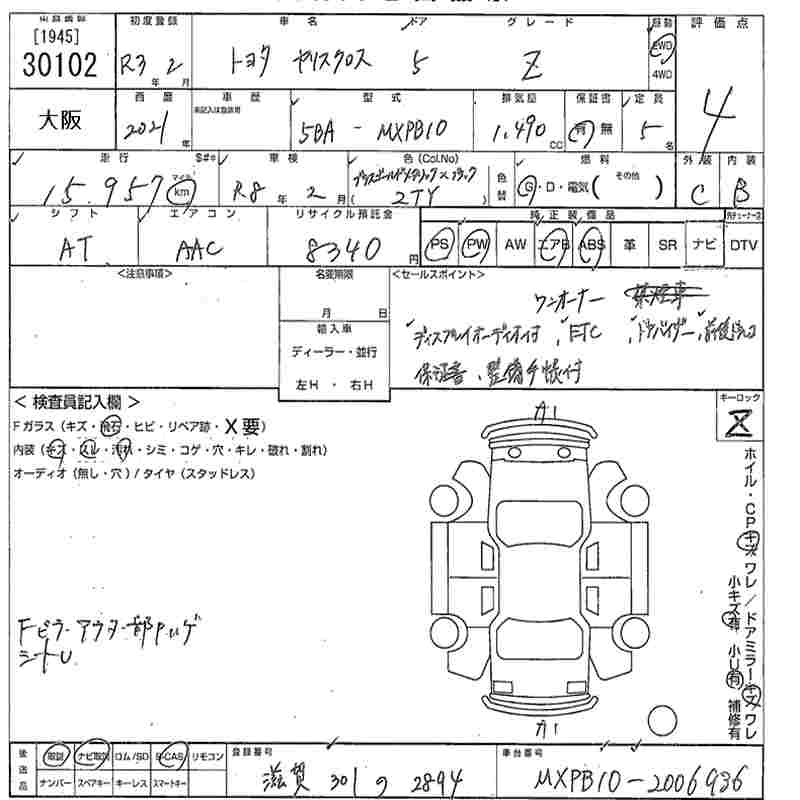 [1945]
30102
大阪
初度登録 R3年 2月
車名 トヨタ ヤリスクロス
ドア 5
グレード Z
駆動 2WD 4WD
評価点 4
西暦 2021年
車歴
未記入は自家用
型式 5BA-MXPB10
排気量 1,490 CC
保証書 有 無
定員 5名
走行 15,957 マイル km
S#※
車検 R8年 2月
色(Col.No)
2TY
色替
燃料 G・D・電気( その他 )
外装 C
内装 B
シフト AT
エアコン AAC
リサイクル預託金 8340円
純正装備品
PS PW AW エアB ABS 革 SR ナビ DTV
<注意事項>
名変期限
月 日
輸入車
ディーラー・並行
左H・右H
<セールスポイント>
ワンオーナー 禁煙車
ディスプレイオーディオ付、ETC、ドアバイザー、
保証書、整備手帳付
<検査員記入欄>
Fガラス(キズ・飛石・ヒビ・リペア跡・X要)
内装(キズ・スレ・汚れ・シミ・コゲ・穴・キレ・破れ・割れ)
オーディオ(無し・穴)/タイヤ(スタッドレス)
キーロック
ガリ
ホイル・CPキズワレ/ドアミラーキズワレ
小キズ有 小U有 補修有
シートU
ガリ
後送品
取説 ナビ取説 ロム/SD B-CAS リモコン
ナンバー スペアキー キーレス スマートキー
登録番号 滋賀 301 の 2894
車台番号 MXPB10-2006936